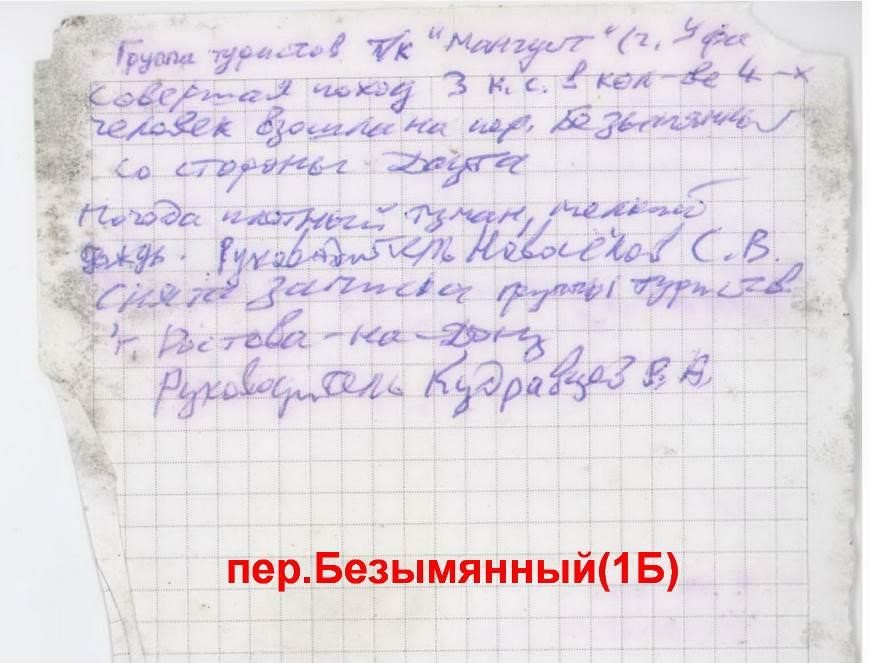 Группа туристов т/к "Мангуст" (г. Уфа
Совершая поход 3 к.с. в кол-ве 4-х
человек взошла на пер. Безымянный
со стороны Даута
Погода плотный туман, мелкий
дождь. Руководитель Новосёлов С.В.
Снята записка группы туристов
г. Ростова-на-Дону
Руководитель Кудравцев
пер.Безымянный(1Б)